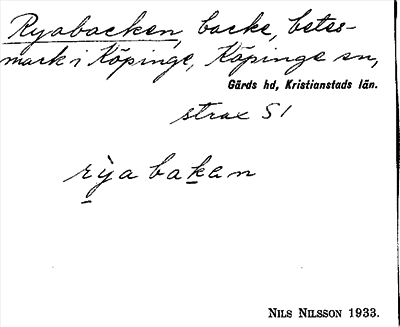 Ryabacken, backe, betes-
mark i Köpinge, Köpinge sn,
Gärds hd, Kristianstads län.
strax S 1
rỳa bakan
NILS NILSSON 1933.